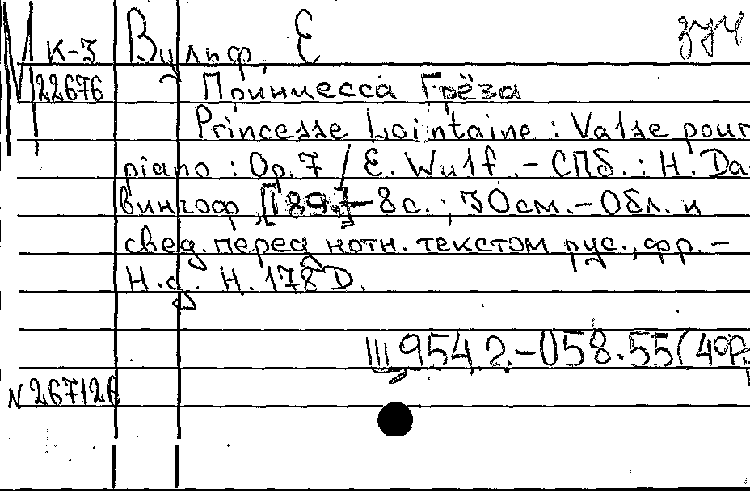 М К-3 Вульф, Е
22676 Принцесса Грёза
Princesse Lointaine : Valse pour
piano : Op. 7 / E. Wulf. - СПб. : Н. Da
вингоф, [189.] - 8 с. ; 30 см. - Обл. и
свед. перед нотн. текстом рус., фр. -
Н. д. Н. 178 D.
Щ 954.2-058.55(4Фр
N 26712